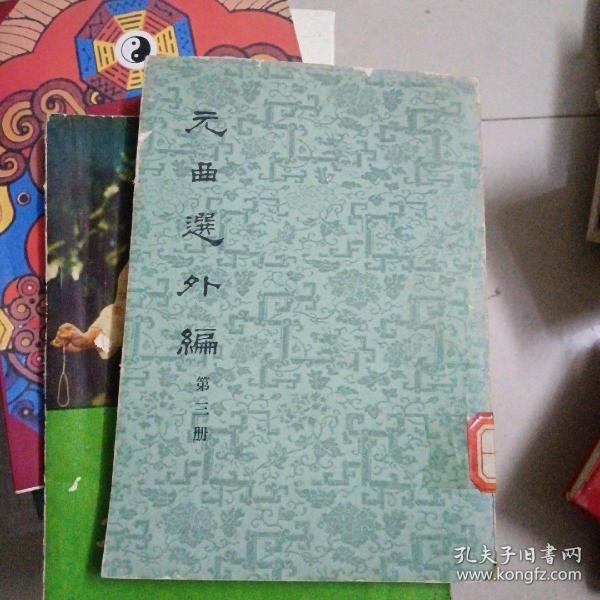 元曲選外編
第三册
孔夫子旧書网
www.kongfz.com